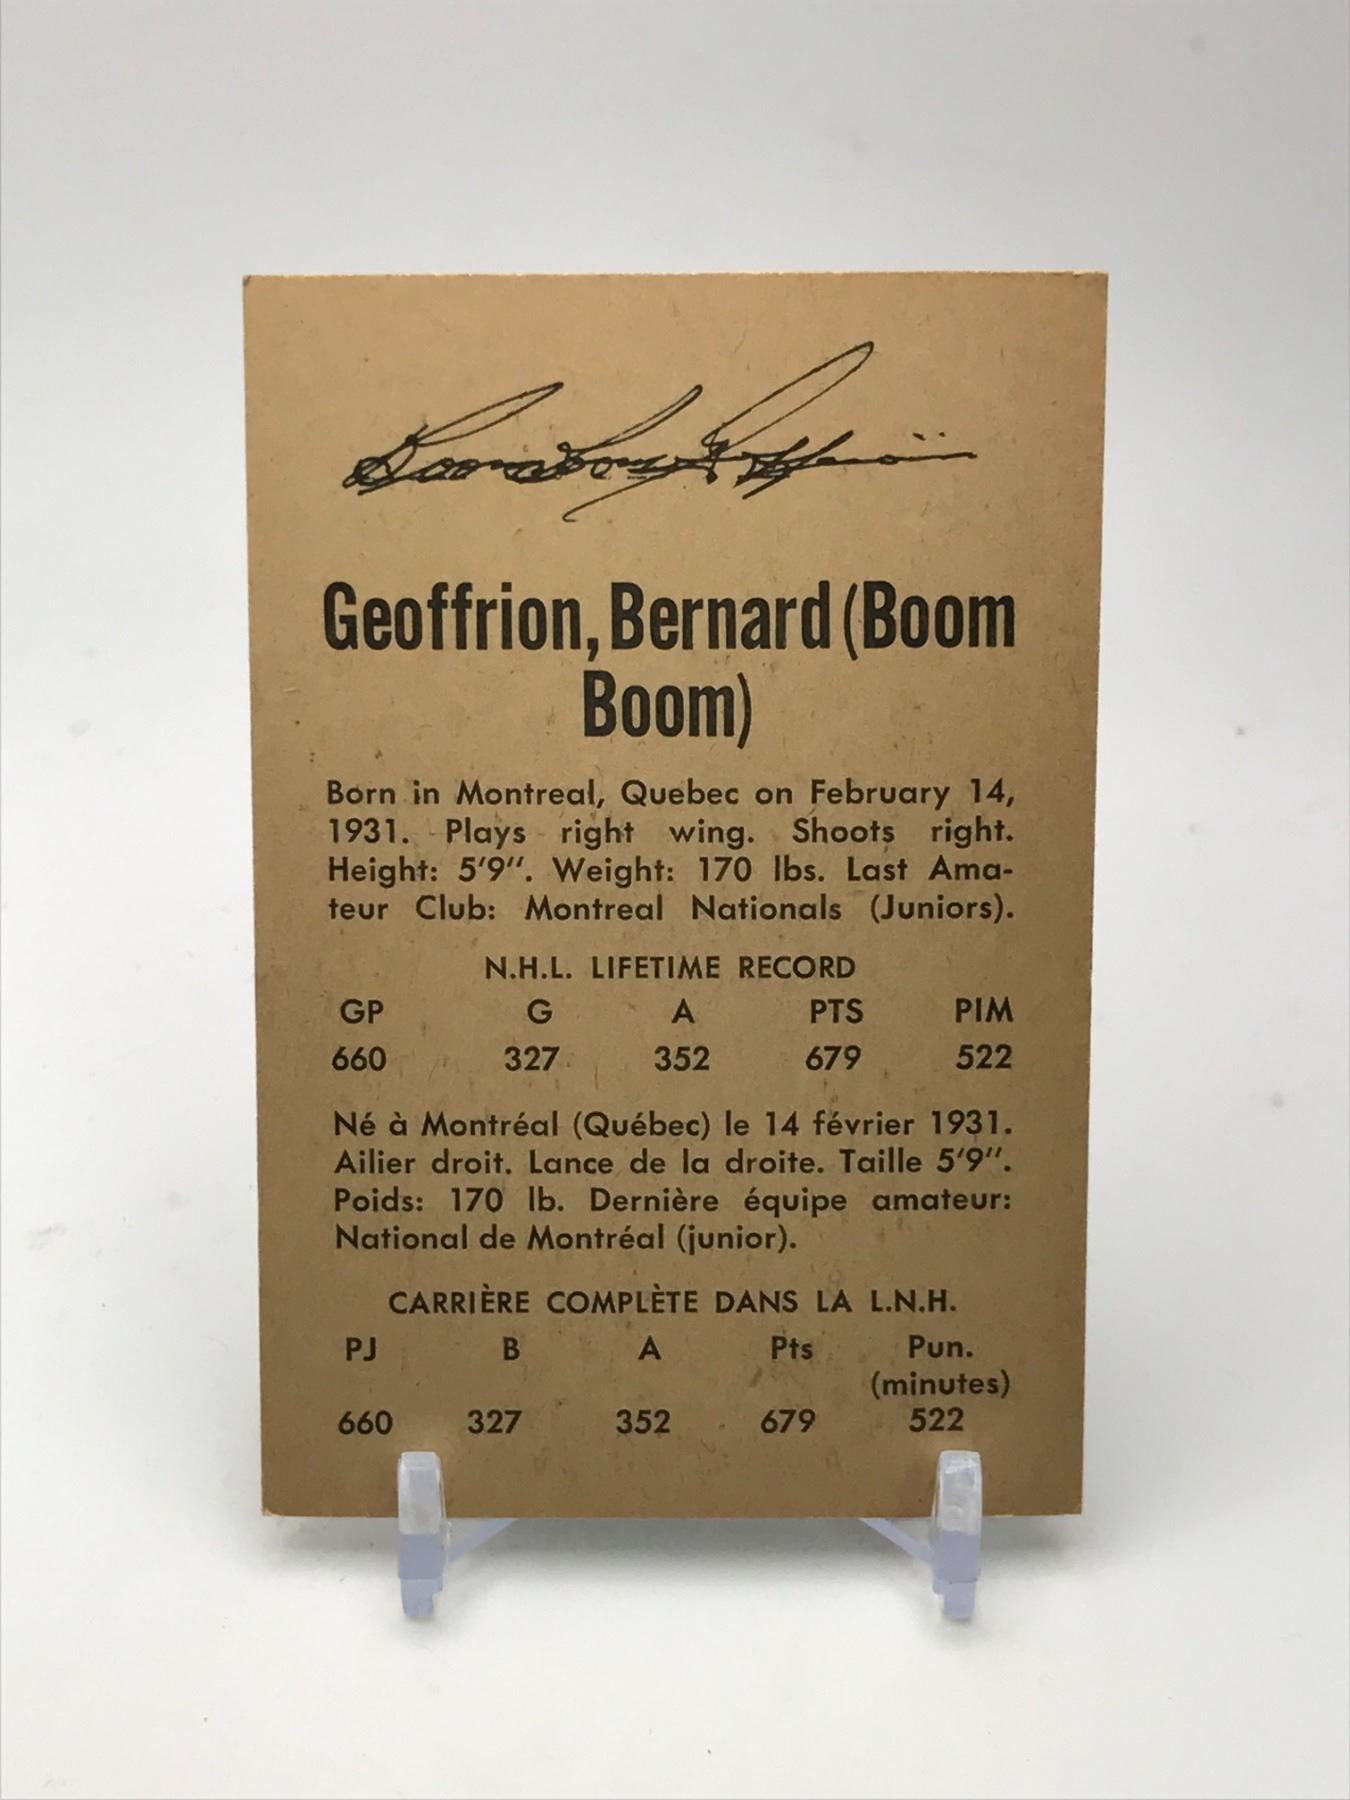 Boom Boom Geoffrion
Geoffrion, Bernard (Boom
Boom)
Born in Montreal, Quebec on February 14,
1931. Plays right wing. Shoots right.
Height: 5'9". Weight: 170 lbs. Last Ama-
teur Club: Montreal Nationals (Juniors).
N.H.L. LIFETIME RECORD
GP G A PTS PIM
660 327 352 679 522
Né à Montréal (Québec) le 14 février 1931.
Ailier droit. Lance de la droite. Taille 5'9".
Poids: 170 lb. Dernière équipe amateur:
National de Montréal (junior).
CARRIÈRE COMPLÈTE DANS LA L.N.H.
PJ B A Pts Pun.
(minutes)
660 327 352 679 522